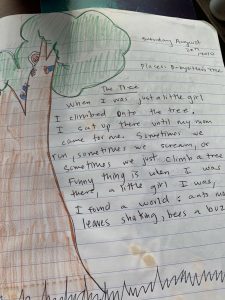 Saturday August
Places:
The Tree
When I was just a little girl
I climbed onto the tree.
I sat up there until my mom
came for me. Sometimes we
run, sometimes we scream, or
Sometimes we just climb a tree
Funny thing is when I was
there, a little girl I was,
I found a world: ants
leaves shaking, bees a buz